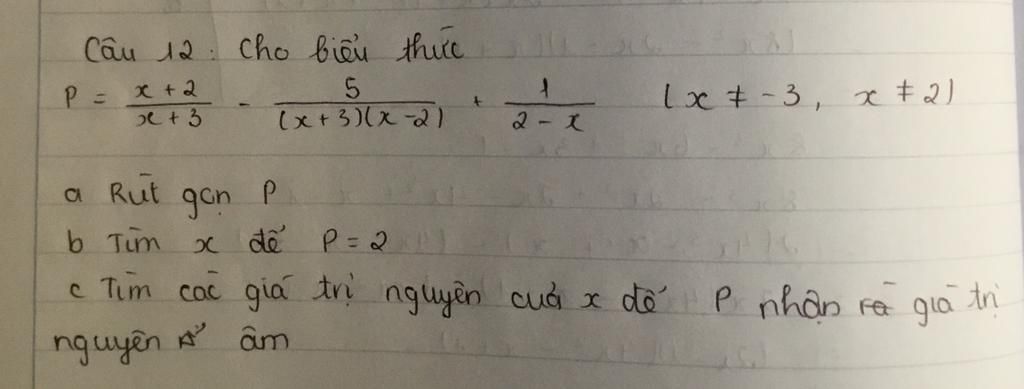 Câu 12: Cho biểu thức
P = \frac{x+2}{x+3} - \frac{5}{(x+3)(x-2)} + \frac{1}{2-x} (x ≠ -3, x ≠ 2)
a Rút gọn P
b Tìm x để P = 2
c Tìm các giá trị nguyên của x để P nhận giá trị
nguyên âm